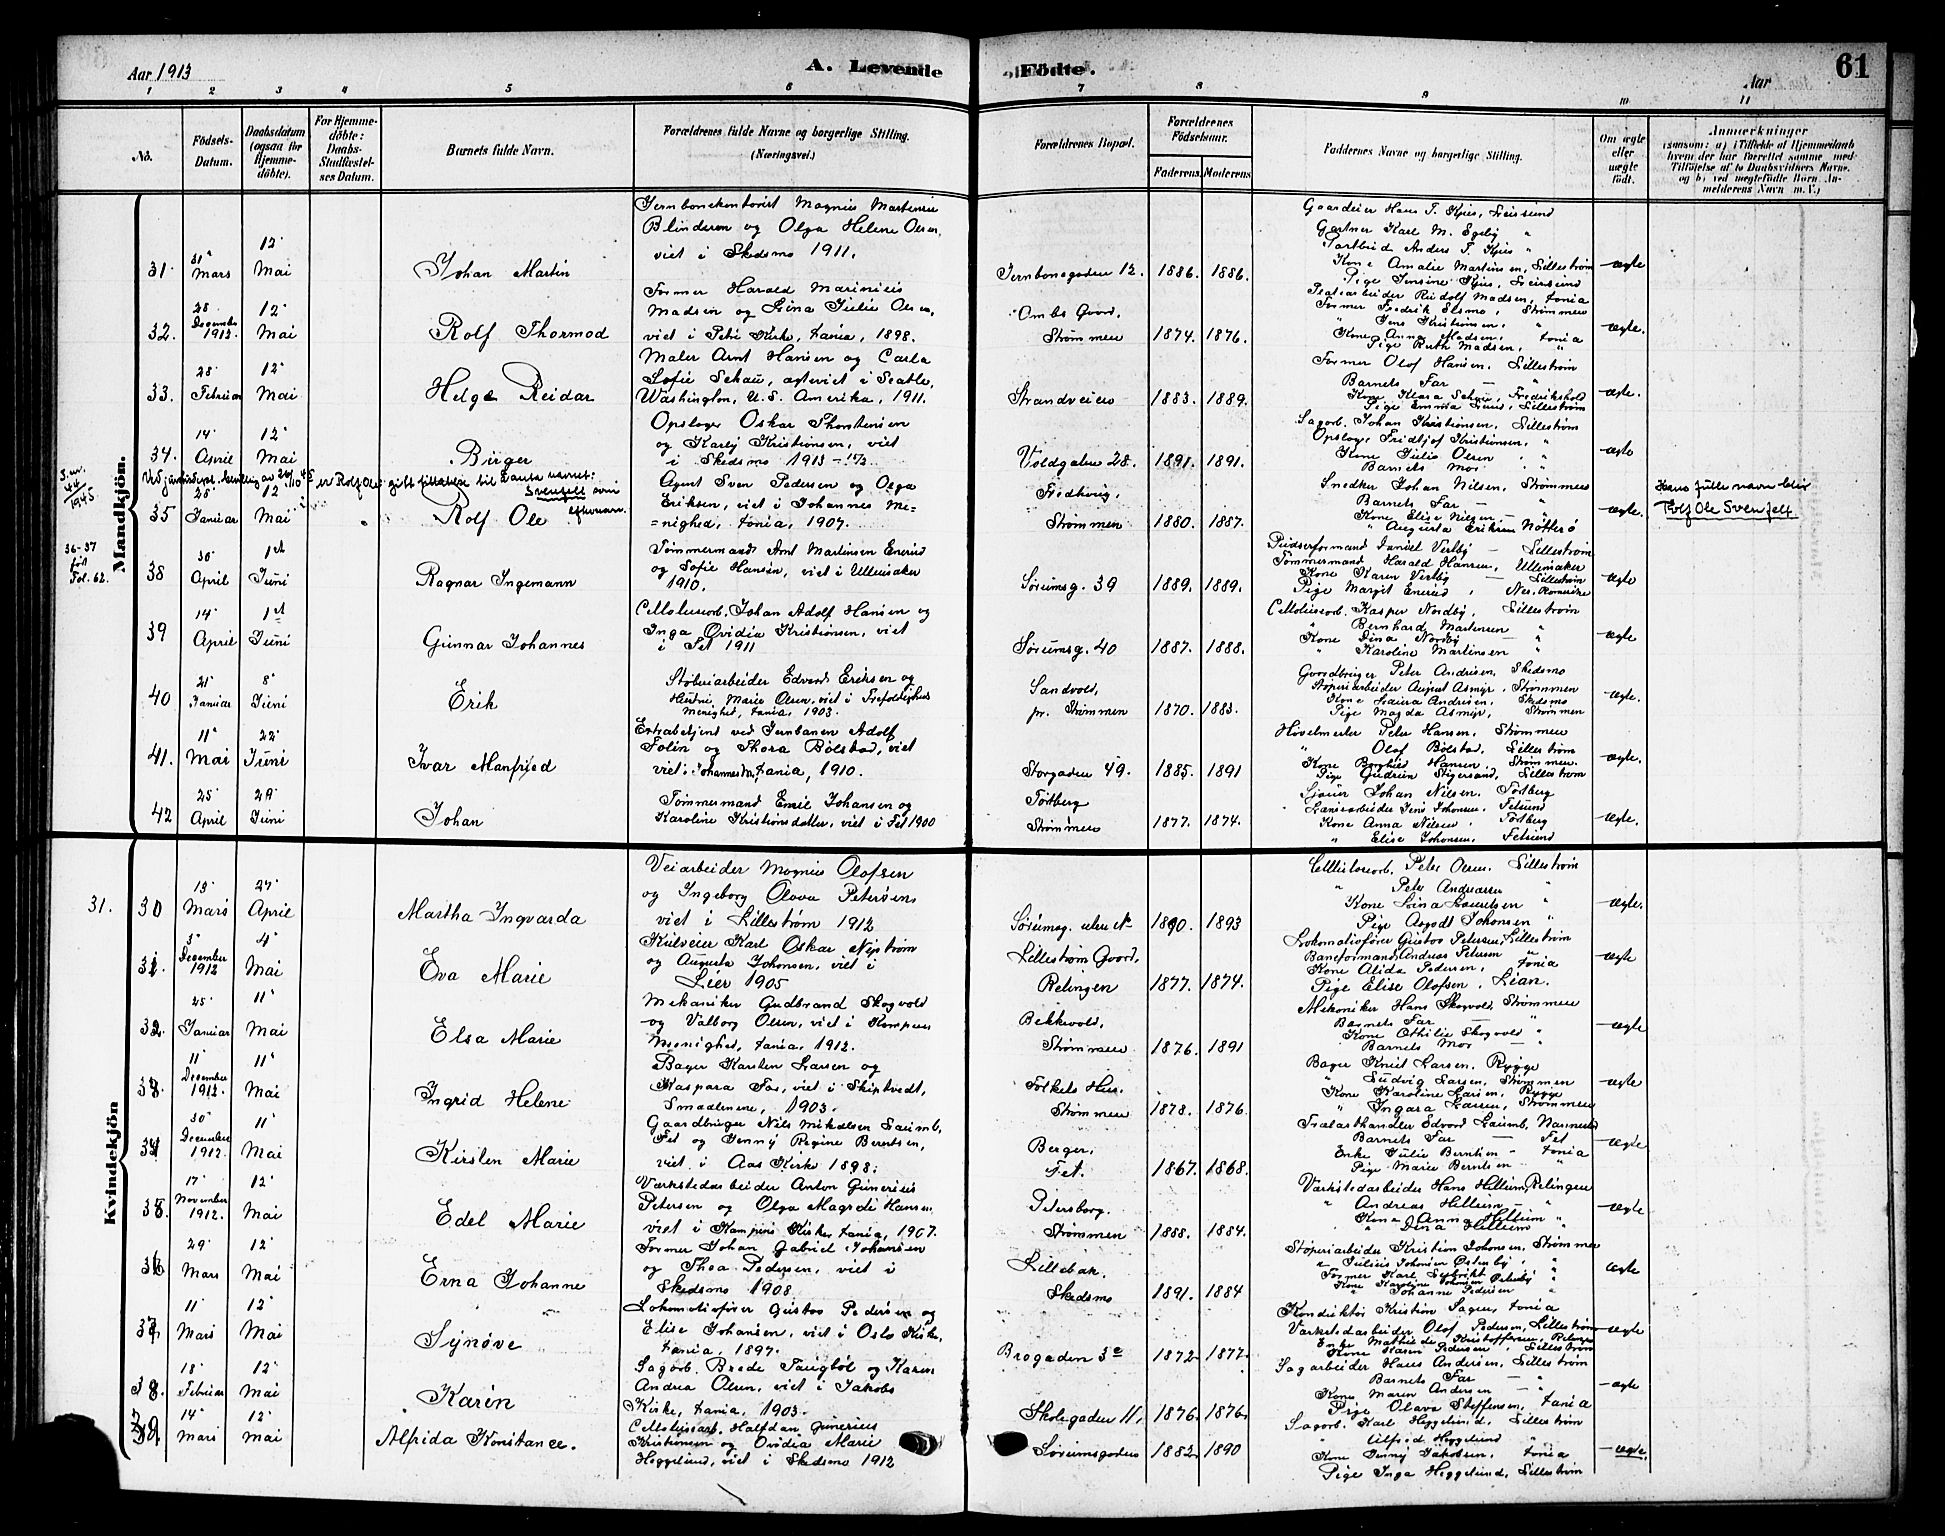 Aar 1913
A. Levende
Födte.
Aar
61
1 2 3 4 5 6 7 8 9 10 11
No.
Födsels-
Datum.
Daabsdatum
(ogsaa for
Hjemme-
döbte).
For Hjemme-
döbte:
Daabs-
Stadfæstel-
ses Datum.
Barnets fulde Navn.
Forældrenes fulde Navne og borgerlige Stilling.
(Næringsvei.)
Forældrenes Bopæl.
Forældrenes
Födselsaar.
Faderens. Moderens
Faddernes Navne og borgerlige Stilling.
Om ægte
eller
uægte
födt.
Anmærkninger
(saasom: a) i Tilfælde af Hjemmedaab
hvem der har forrettet samme med
Tilföielse af to Daabsvidners Navne,
og b) ved uægtefödte Börn An-
melderens Navn m. V.)
Mandkjön.
31. 31 Mars 12 Mai Johan Martin
Jernbanekontorist Magnus Martinsen
Blinderen og Olga Helene Olsen,
viet i Skedsmo 1911.
Jernbanegaden 12. 1886. 1886.
Gaardeier Hans T. Kjus, Leirsund
Gartner Karl M. Egeby "
Anders T. Kjus "
Kone Amalie Martinsen, Lilleström
Pige Jensine Kjus, Leirsund
ægte
32. 28 December 1912. 12 Mai Rolf Thormod
Former Harald Marinius
Madsen og Lina Julie Olsen,
viet i Petri Kirke, Xania, 1898.
Ombs Gaard,
Strømmen 1874. 1876.
Rudolf Madsen, Xania
Former Fredrik Elsmo, Strømmen
" Jens Kristiansen, "
Kone Anna Madsen, Xania
Pige Ruth Madsen, "
ægte.
33. 28 Februar 12 Mai Helge Reidar
Maler Arnt Hansen og Carla
Sofie Schau, ægteviet i Seatle,
Washington, U.S. Amerika, 1911.
Strandveien 1883. 1889.
Former Olaf Hansen, Lilleström
Barnets Far — "
Kone Klara Schau, Fredrikshald
Pige Emma Lund, Lilleström
ægte.
34. 14 April 12 Mai Birger
Opslager Oskar Thorstensen
og Karly Kristiansen, viet
i Skedsmo 1913
Voldgaten 28. 1891. 1891.
Sagarb. Johan Kristiansen, Lilleström
Opslager Fridtjof Kristiansen, "
Kone Julie Olsen "
Barnets Mor "
ægte
J.nr. 44 1945.
Ved bevilling av er Rolf Ole gitt tillatelse til å anta navnet:
Svenfelt som
efternavn.
35 28 Januar 12 Mai Rolf Ole
Agent Sven Pedersen og Olga
Eriksen, viet i Johannes Me-
=nighed, Xania, 1907.
Fredheim,
Strømmen 1880. 1887.
Snedker Johan Nilsen, Strømmen
Barnets Far — "
Kone Elise Nilsen — "
" Augusta Eriksen Nötterö
ægte.
Hans fulle navn blir
Rolf Ole Svenfelt
36-37
før
Fol. 62.
38 30 April 1st Juni Ragnar Ingemann
Tømmermand Arnt Martinsen Enerud
og Sofie Hansen, viet i Ullensaker
1910.
Sørumsg. 39 1889. 1889.
Pudserformand Daniel Verlby — Lilleström
Tømmermand Harald Hansen, Ullensaker
Kone Karen Verlby — Lilleström
Pige Margit Enerud, Nes, Romerike
ægte
39 14 April 1st Juni Gunnar Johannes
Cellulosearb. Johan Adolf Hansen og
Inga Ovidia Kristiansen, viet
i Fet 1911
Sørumsg. 40 1887. 1888.
Cellulosearb. Kasper Nordby, Lilleström
" Bernhard Martinsen "
Kone Dina Nordby — "
" Karoline Martinsen "
ægte
40 21 Januar 8 Juni Erik
Støberiarbeider Edvard Eriksen og
Marie Olsen, viet i Trefoldigheds
Menighed, Xania, 1903.
Sandvold,
pr. Strømmen 1870. 1883.
Gaardbruger Peter Andersen, Skedsmo
Støperiarbeider August Asmyr, Strømmen
Kone Laura Andersen, Skedsmo
Pige Magda Asmyr, Strømmen
ægte.
41. 11 Mai 22 Juni Ivar Manfred
Extrabetjent ved Jernbanen Adolf
Folin og Thora Bölstad, viet
i Johannes Xania, 1910.
Storgaden 49. 1885. 1891
Høvelmester Peter Hansen, Strømmen
" Olaf Bölstad, Lilleström
Kone Borghild Hansen, Strømmen.
Pige Gudrun Stigersand, Lilleström
ægte.
42 25 April 29 Juni Johan
Tømmermand Emil Johansen og
Karoline Kristiansdatter, viet i Fet 1900
Tortberg
Strømmen 1877. 1874.
Johan Nilsen, Tortberg
Jens Johansen, Fetsund
Kone Anna Nilsen, Tortberg
" Elise Johansen, Fetsund
ægte.
Kvindekjön
31. 30 13 Mars 27 April Martha Ingvarda
Veiarbeider Magnus Olafsen
og Ingeborg Olava Petersen
viet i Lilleström 1912
Sørumsg. uten № 1890. 1893
Cellulosearb. Peter Olsen, Lilleström
" Peter Andreassen "
Kone Lina Lauritsen "
Pige Aagodt Johansen "
ægte.
31. 3 December 1912 4 Mai Eva Marie
Kulveier Karl Oskar Nystrøm
og Augusta Johansen, viet i
Lier 1905
Lilleström Gaard,
Relingen 1877. 1874.
Lokomotivfører Gustav Petersen, Lilleström
Baneformand Andreas Petersen Xania
Kone Alida Pedersen, "
Pige Elise Olafsen, Lian.
ægte
32. 25 Januar 11 Mai Elsa Marie
Mekaniker Gudbrand Skogvold
og Valborg Olsen, viet i Kampens
Menighed, Xania, 1912.
Bekkevold,
Strømmen 1876. 1891
Mekaniker Hans Skogvold, Strømmen
Barnets Far — "
Kone Othilie Skogvold "
Barnets Mor — "
ægte
33. 11 December 1912. 11 Mai Ingrid Helene
Bager Karsten Larsen og
Kaspara Fos, viet i Skiptvedt,
Smaalenene, 1903.
Folkets Hus.
Strømmen 1878. 1876.
Bager Knut Larsen, Rygge
" Ludvig Larsen, Strømmen
Kone Karoline Larsen, Rygge
" Ingara Larsen, Strømmen
ægte
34 30 December 1912. 11 Mai Kirsten Marie
Gaardbruger Nils Mikalsen Laumb,
Fet og Jenny Regine Berentsen,
viet i Aas Kirke 1898.
Berger,
Fet. 1867. 1868.
Trælasthandler Edvard Laumb, Nannestad
Barnets Far — Fet
Enke Julie Berntsen — Xania
Pige Marie Berntsen "
ægte
35. 17 November 1912. 12 Mai Edel Marie
Værkstedarbeider Anton Gunerius
Petersen og Olga Magda Hansen,
viet i Kampens Kirke, Xania, 1907.
Petersborg,
Strømmen 1888. 1884.
Værkstedarbeider Hans Hellum, Relingen
" Andreas Hellum — "
Kone Anna Hellum "
" Dina Hellum "
ægte
36 29 Mars 12 Mai Erna Johanne
Former Johan Gabriel Johansen
og Thea Pedersen, viet i
Skedsmo 1908
Lillebak,
Skedsmo 1891. 1884
Støperiarbeider Kristian Johansen, Strømmen
" Julius Johansen Østerby, "
Former Karl "
Kone Karoline Johansen Østerby "
" Johanne Pedersen "
ægte
37 11 Mars 12 Mai Synøve
Lokomotivfører Gustav Pedersen og
Elise Johansen, viet i Oslo Kirke,
Xania, 1897.
Brogaden 3e 1872. 1877.
Konduktør Kristian Sagen, Xania
Værkstedarbeider Olaf Pedersen, Lilleström
Enke Mathilde Kristoffersen, Relingen
Kone Karen Pedersen, Lilleström
ægte
38. 18 Februar 12 Mai Karén
Sagarb. Brede Taugbøl og Karen
Andrea Olsen, viet i Jakobs
Kirke, Xania, 1903.
Skolegaden 11, 1876. 1876.
Sagarbeider Hans Andersen, Lilleström
Barnets Far — "
Kone Maren Andersen — "
Pige Olava Steffensen, Xania
ægte
39 14 Mars 12 Mai Alfrida Konstance.
Cellulosearb. Halfdan Gunerius
Kristiansen og Ovidia Marie
Heggelund, viet i Skedsmo 1912
Sørumsgaden 1882. 1890
Sagarb. Karl Heggelund, Lilleström
" Alfred Heggelund "
Kone Jenny Jakobsen, Xania
Pige Inga Heggelund, Lilleström
ægte